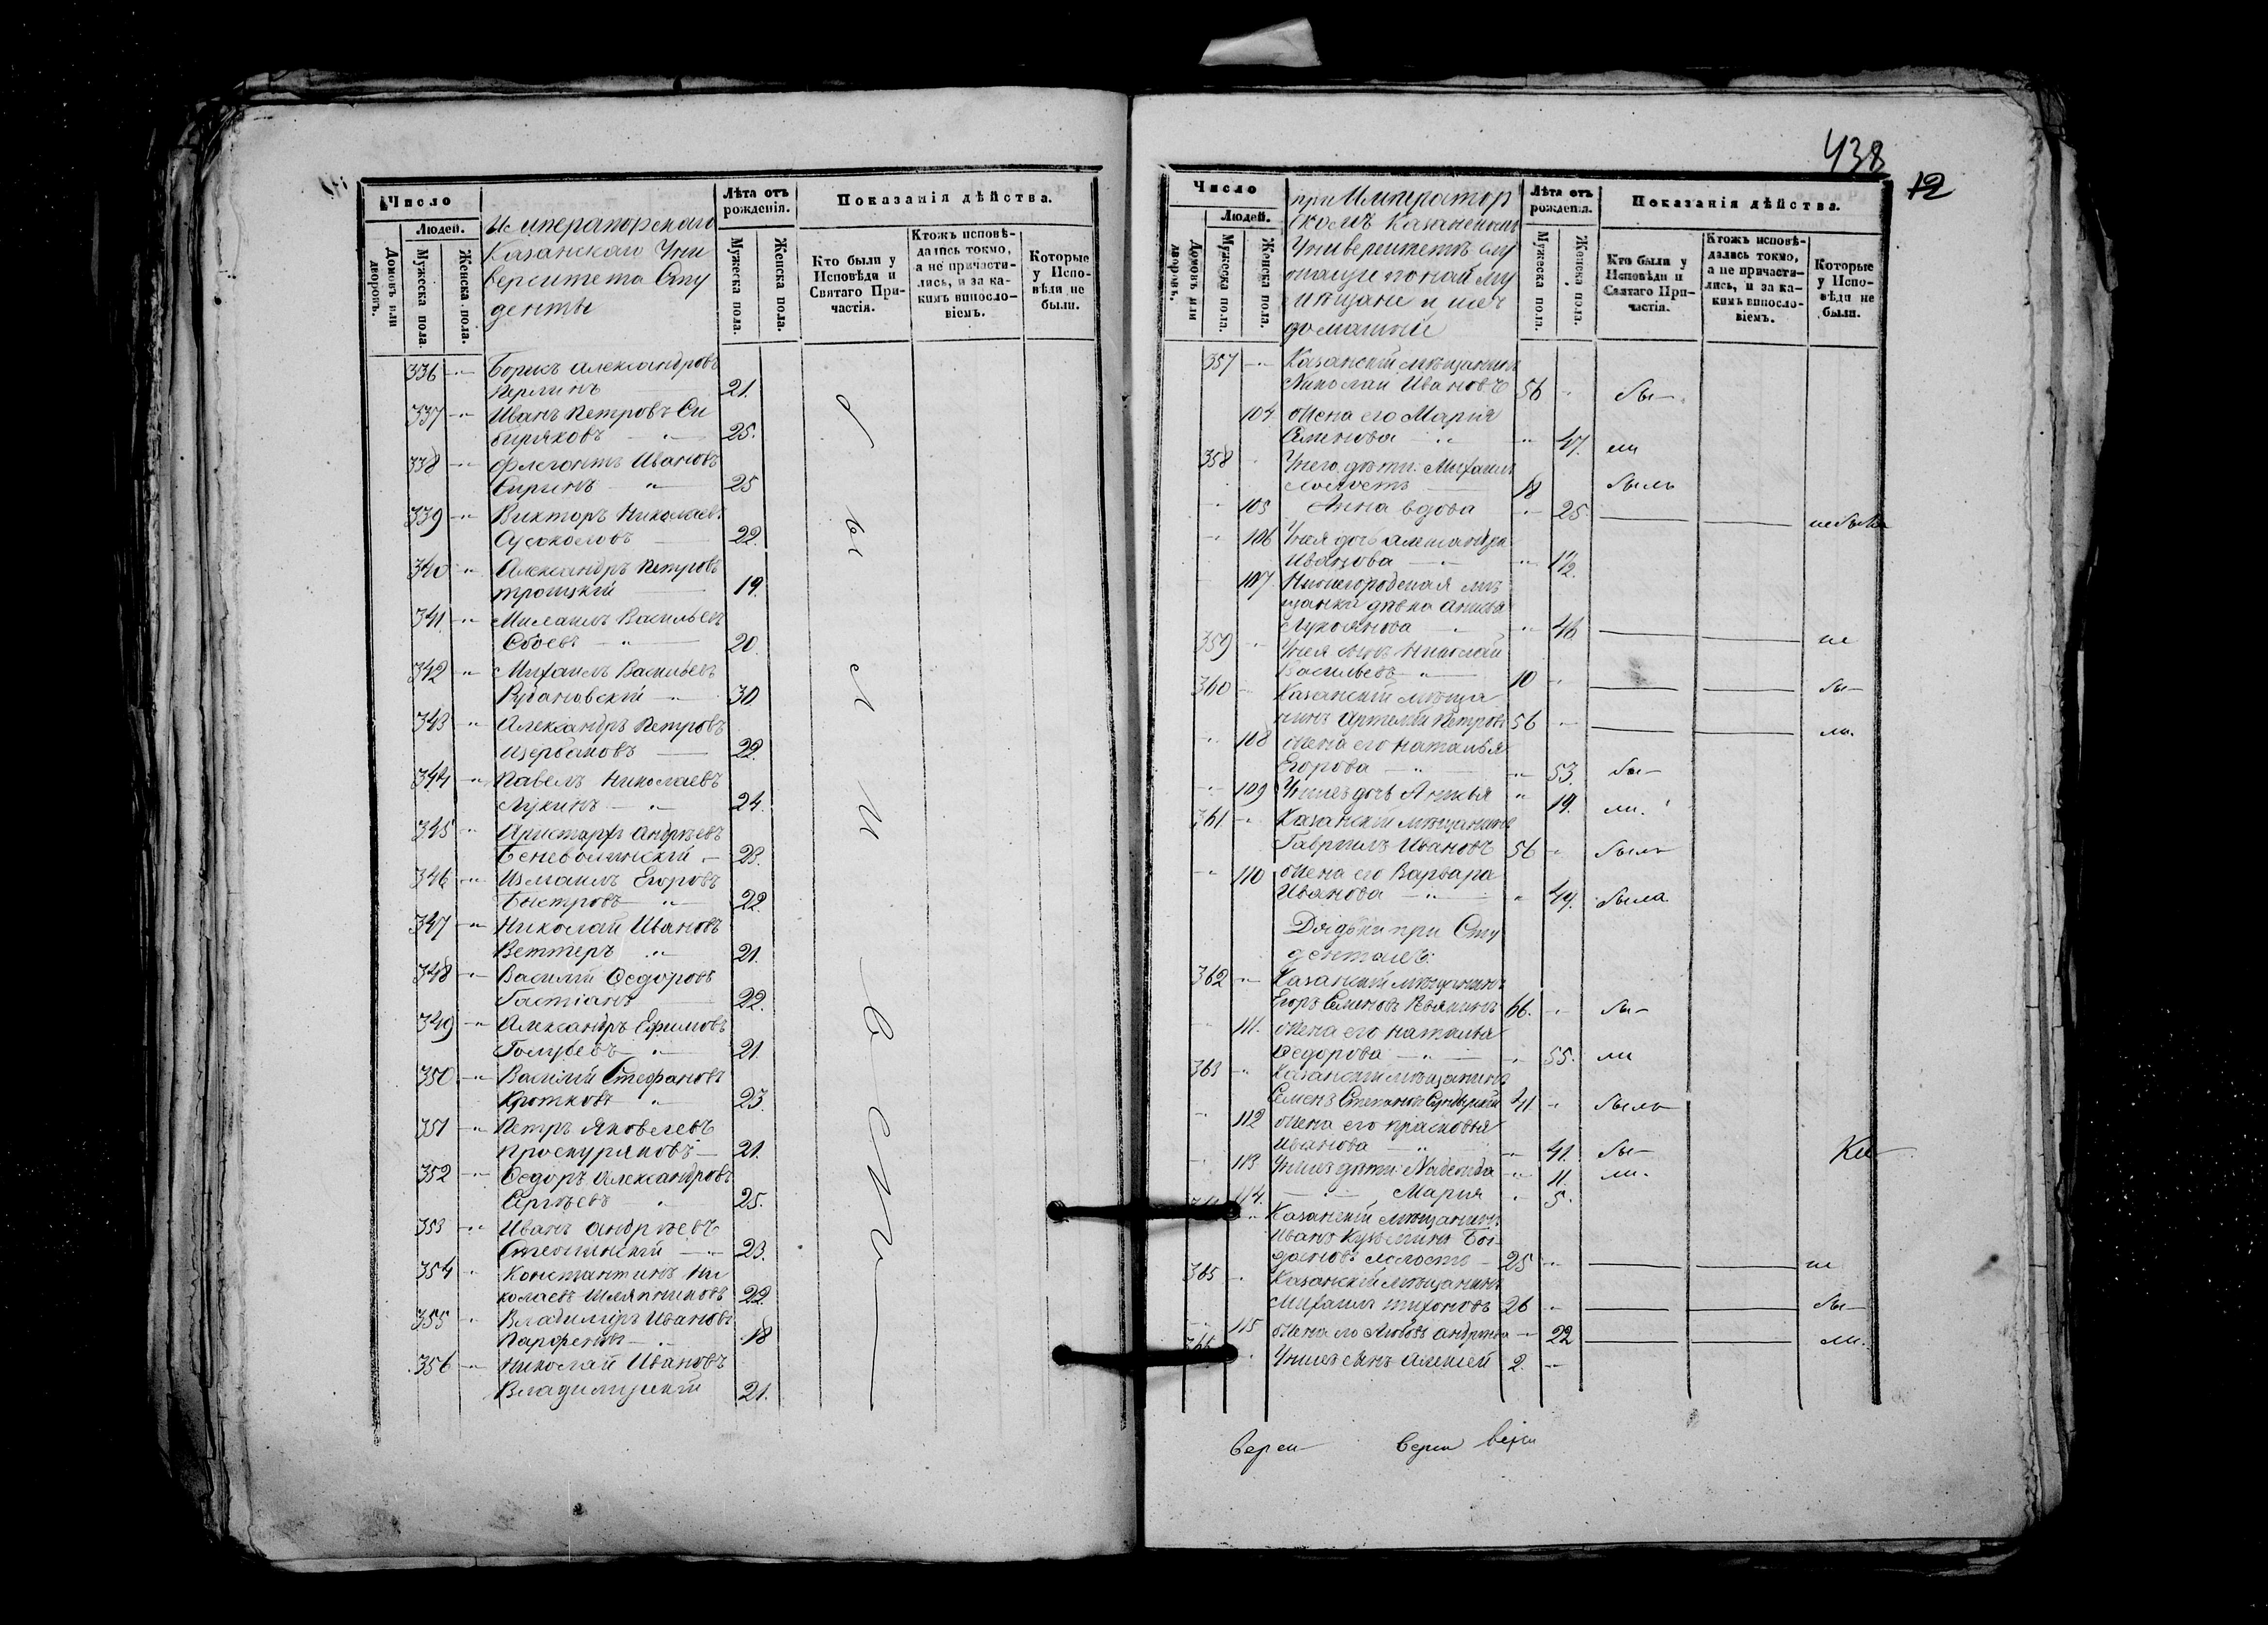 Число
Людей.
Домовъ или дворовъ.
Мужеска пола.
Женска пола.
Императорскаго
Казанскаго Уни
верситета Сту
денты
Лѣта отъ рожденія.
Мужеска пола.
Женска пола.
Показанія дѣйства.
Кто были у Исповѣди и Святаго Причастія.
Ктожъ исповѣдались токмо, а не причастились, и за какимъ винословіемъ.
Которые у Исповѣди не были.
336 Борисъ Александровъ
21.
337 Иванъ Петровъ Си
биряковъ 25.
338 Флегонтъ Ивановъ
Сиринъ 25
339 Викторъ Николаевъ
22.
340 Александръ Петровъ
Троицкій 19.
341 Михаилъ Васильевъ
Сбоевъ 20.
342 Михаилъ Васильевъ
30
343 Александръ Петровъ
Щербаковъ 22.
344 Павелъ Николаевъ
Лукинъ 24.
345 Аристархъ Андреевъ
Беневоленскій 23.
346 Измаилъ Егоровъ
Быстровъ 22.
347 Николай Ивановъ
Веттеръ 21.
348 Василій Федоровъ
22.
349 Александръ Ефимовъ
Голубевъ 21.
350 Василій Стефановъ
Кротковъ 23.
351 Петръ Яковлевъ
Проскуряковъ 21.
352 Федоръ Александровъ
Сергѣевъ 25.
353 Иванъ Андреевъ
23.
354 Константинъ Ни
колаевъ Шляпниковъ 22.
355 Владимиръ Ивановъ
Парфеновъ 18
356 Николай Ивановъ
21.
438
12
Число
Людей.
Домовъ или дворовъ.
Мужеска пола.
Женска пола.
при Император
скомъ Казанскомъ
Университетѣ слу
жащіе по найму
мѣщане и ихъ
домашніе
Лѣта отъ рожденія.
Мужеска пола.
Женска пола.
Показанія дѣйства.
Кто были у Исповѣди и Святаго Причастія.
Ктожъ исповѣдались токмо, а не причастились, и за какимъ винословіемъ.
Которые у Исповѣди не были.
357 Казанскій мѣщанинъ
Николай Ивановъ 56 бы-
104 жена его Марія
Семенова 47. ли
358 У него дѣти: Михаилъ
холостъ 18 былъ
105 Анна вдова 25 не была
106 У нея дочь Александра
Иванова 1½.
107 Нижегородская мѣ
щанка дѣвка Анисья
Лукоянова 46 не
359 У нея сынъ Николай
Васильевъ 10 бы-
360 Казанскій мѣща
нинъ Артемій Петровъ 56 ли.
108 жена его Наталья
Егорова 53. бы-
109 У нихъ дочь 19. ли.
361 Казанскій мѣщанинъ
Гавріилъ Ивановъ 56 былъ
110 жена его Варвара
Иванова 49. была
Дядьки при Сту
дентахъ:
362 Казанскій мѣщанинъ
Егоръ Семеновъ 66. бы-
111. жена его Наталья
Федорова 55. ли
363 Казанскій мѣщанинъ
Семенъ Степановъ 41 былъ
112 жена его Прасковья
Иванова 41. бы-
113 У нихъ дѣти: Надежда 11. ли.
114. Марія 5.
Казанскій мѣщанинъ
Иванъ Кузьминъ Бог
дановъ холостъ 25 не
365 Казанскій мѣщанинъ
Михаилъ Тихоновъ 26 бы-
115 жена его Любовь Андреева 22 ли.
366 У нихъ сынъ Алексей 2.